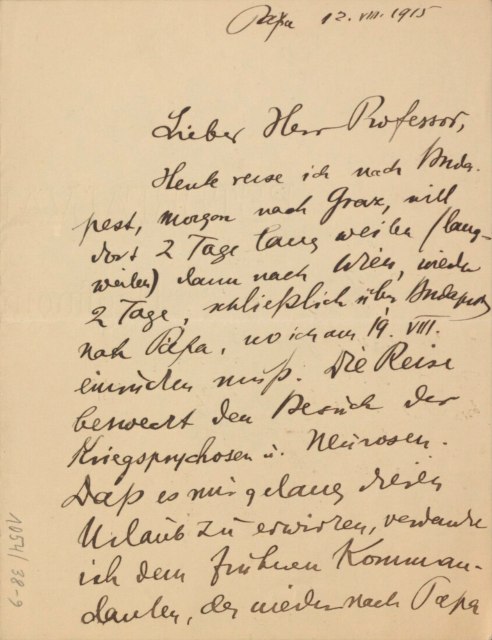 Pápa 12. VIII. 1915
Lieber Herr Professor,
Heute reise ich nach Buda-
pest, morgen nach Graz, will
dort 2 Tage lang weilen (lang-
weilen) dann nach Wien, wieder
2 Tage, schließlich über Budapest
nach Pápa, wo ich am 19. VIII.
einrücken muß. Die Reise
bezweckt den Besuch der
Kriegspsychosen u. Neurosen.
Daß es mir gelang diesen
Urlaub zu erwirken, verdanke
ich dem früheren Komman-
danten, der wieder nach Pápa
1054/38-9